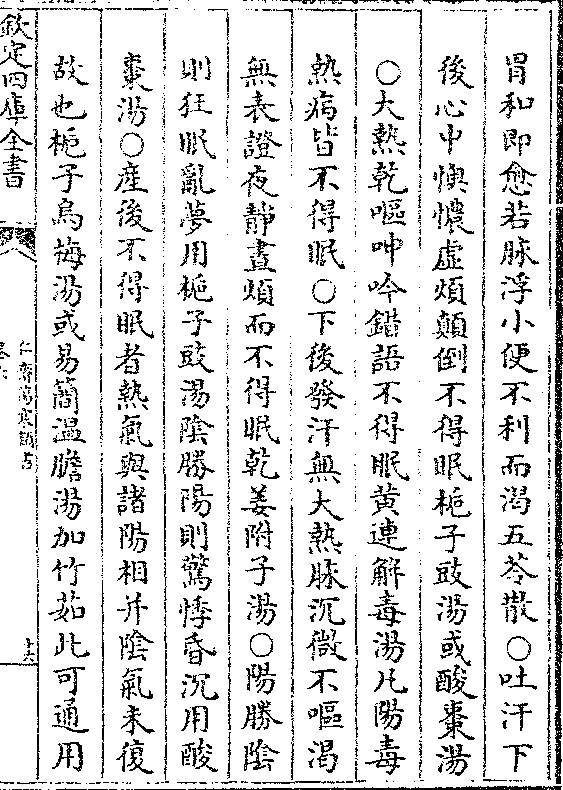 胃和即愈若脉浮小便不利而渴五苓散○吐汗下
後心中懊憹虚煩顛倒不得眠梔子豉湯或酸棗湯
○大熱乾嘔呻吟錯語不得眠黄連解毒湯凡陽毒
熱病皆不得眠○下後發汗無大熱脉沉微不嘔渴
無表證夜靜晝煩而不得眠乾姜附子湯○陽勝陰
則狂眠亂夢用梔子豉湯陰勝陽則驚悸昏沉用酸
棗湯○産後不得眠者熱氣與諸陽相并陰氣未復
故也梔子烏梅湯或易簡温膽湯加竹茹此可通用
欽定四庫全書
仁齋傷寒類書
十六